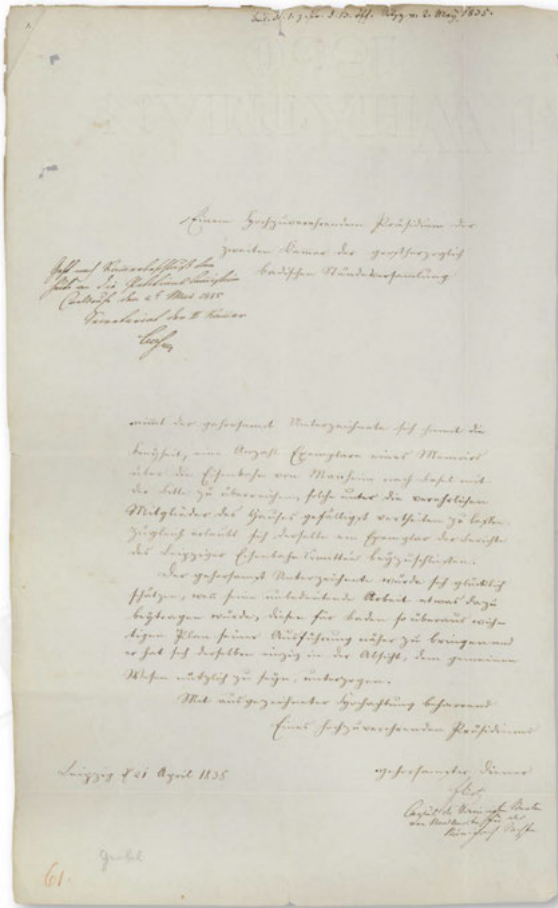 2. May 1835.
Einem Hochzuverehrendem Präsidium der
zweiten Kamer der großherzoglich
badischen Ständeversamlung
Geht nach Kammerbeschluß von
heute an die Petitions Comission
Carlsruhe den 2t Mai 1835
Secretariat der II Kamer
nimt der gehorsamst Unterzeichnete sich hiemit die
Freyheit, eine Anzahl Exemplare eines Memoirs
über die Eisenbahn von Manheim nach Basel mit
der Bitte zu überreichen, solche unter die verehrlichen
Mitglieder des Hauses gefälligst vertheilen zu lassen.
Zugleich erlaubt sich derselbe ein Exemplar der Berichte
des Leipziger Eisenbahn Comittees beyzuschließen.
Der gehorsamst Unterzeichnete würde sich glücklich
schätzen, wen seine unbedeutende Arbeit etwas dazu
beytragen würde, diesen für Baden so überaus wich-
tigen Plan seiner Ausführung näher zu bringen und
er hat sich derselben einzig in der Absicht, dem gemeinen
Wesen nützlich zu seyn, unterzogen.
Mit ausgezeichneter Hochachtung beharrend
Eines hochzuverehrenden Präsidiums
Leipzig d 21 April 1835
gehorsamster Diener
List
Consul der Vereinigten Staaten
von Nordamerika für das
Königreich Sachsen
61.